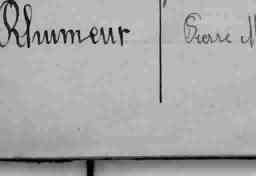 Rhumeur Pierre M